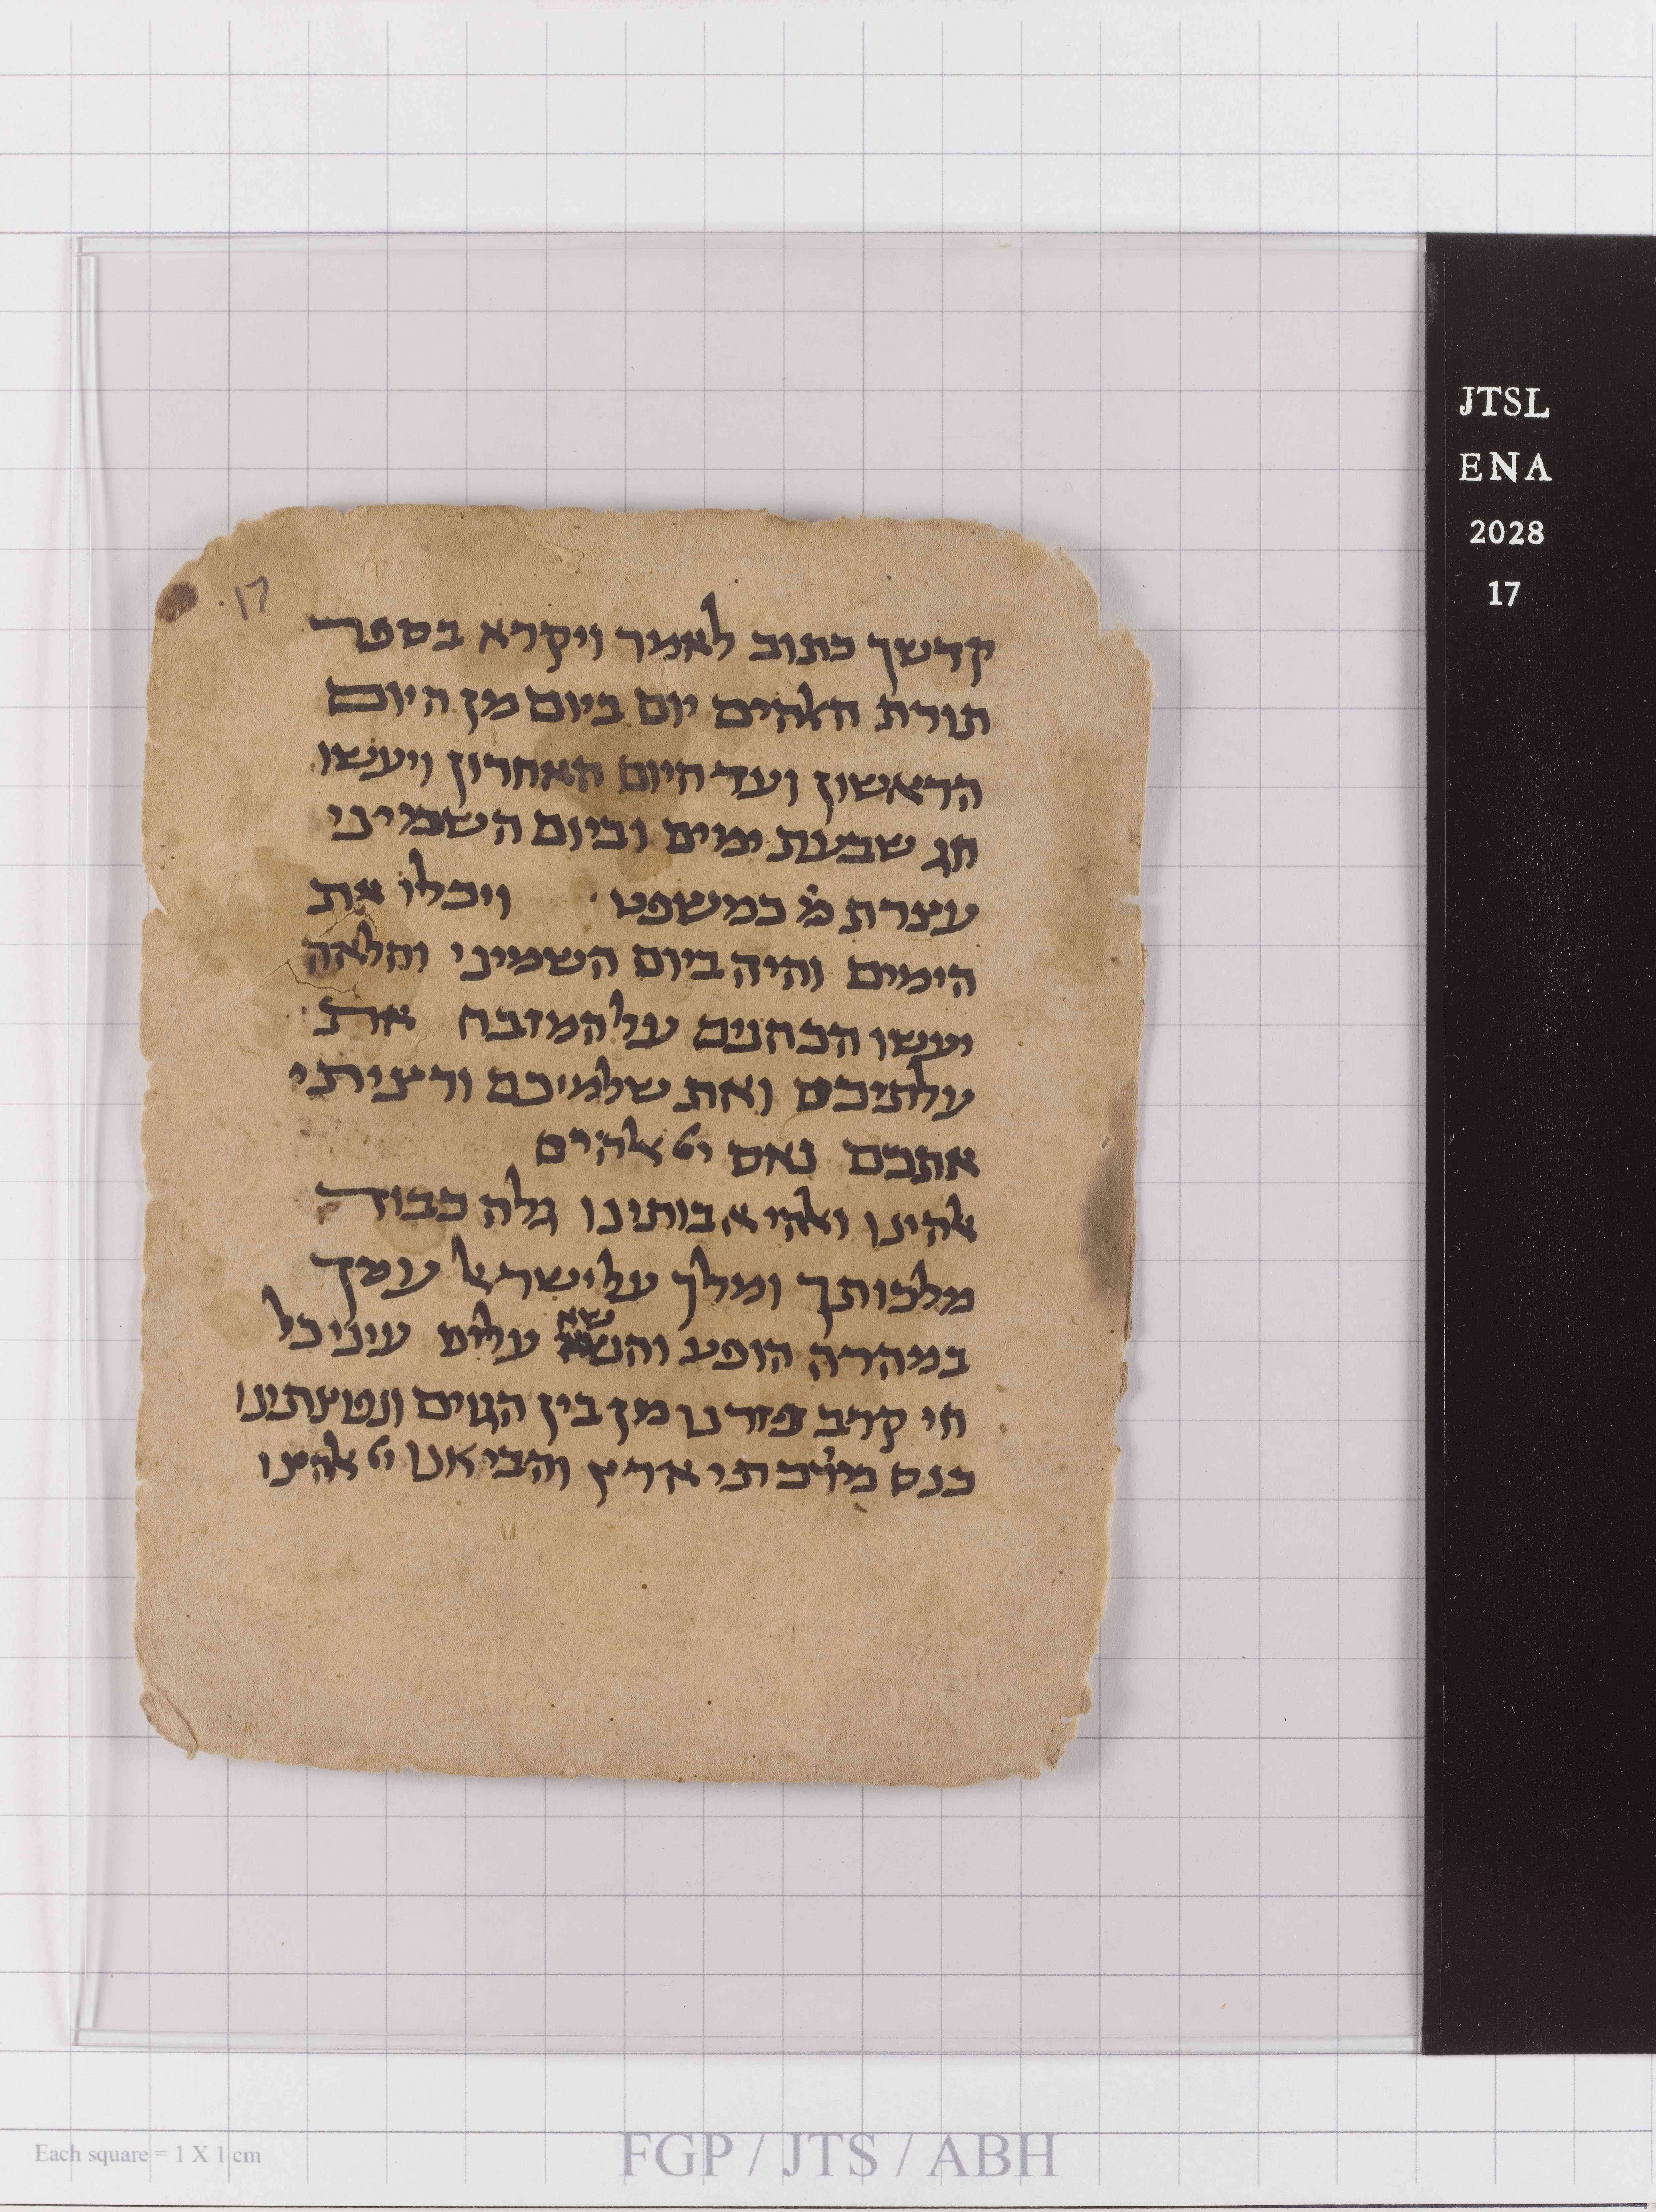 קדשך כתוב לאמר ויקרא בספר
תורת האלהים יום ביום מן היום
הראשון ועד היום האחרון ויעשו
חג שבעת ימים וביום השמיני
עצרת כמשפט ויכלו את
הימים והיה ביום השמיני והלאה
יעשו הכהנים על המזבח את
עלתיכם ואת שלמיכם ורציתי
אתכם נאם אלהים
אלהינו ואלהי אבותינו גלה כבוד
מלכותך ומלך על ישראל עמך
במהרה הופע והנשא עלים עיני כל
חי קרב פזרנו מן בין הגוים ונפוצתינו
כנס מירכתי ארץ והביאנו אלהינו
JTSL
ENA
2028
17
Each square = 1 X 1 cm
FGP / JTS / ABH